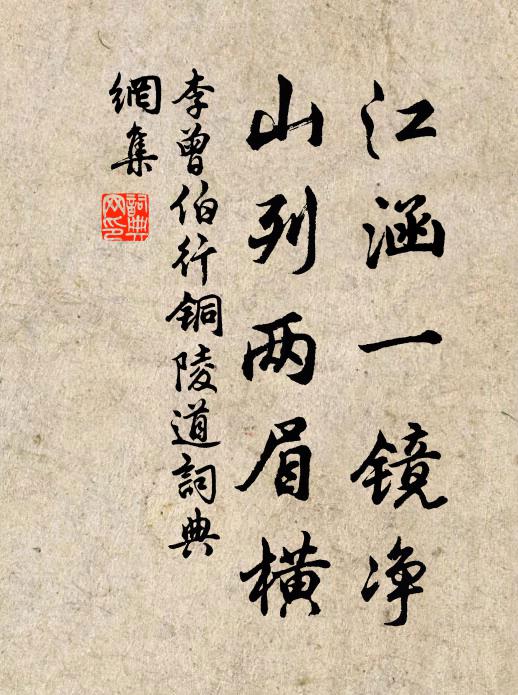 江涵一镜净
山列两眉横
李曾伯行铜陵道词典
網集
詞典网印